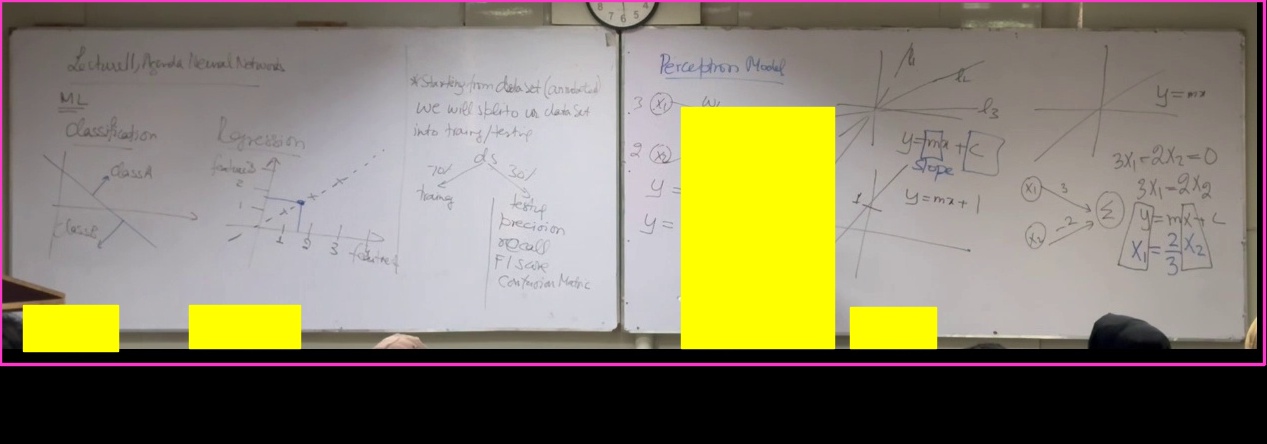 Lecture 11, Agenda Neural Networks
ML
Classification
Class A
Class B
Regression
2
1
1 2 3 4
*Starting from dataset (annotated)
we will split our dataset
into traing/testing
ds
70% 30%
traing
testing
precision
recall
F1 score
Confusion Matric
7 6 5
Perceptron Model
3 x1 w1
2 x2
y =
y =
l1
l2
l3
y=mx+C
slope
1
y=mx+1
y=mx
3x1-2x2=0
3x1=2x2
x1 3
Σ
x2 -2
y=mx+C
x1=2/3 x2